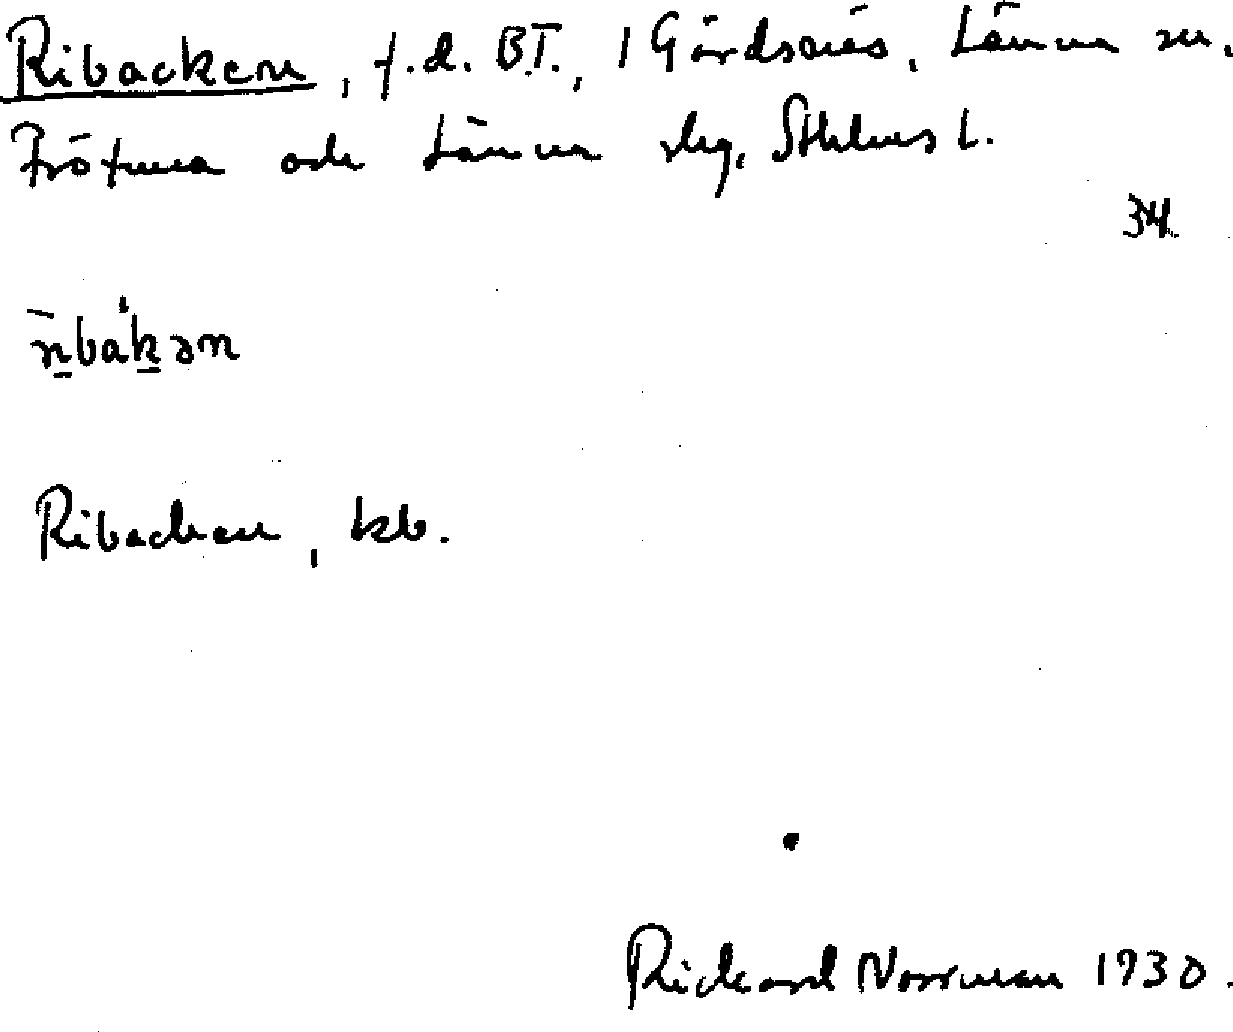 Ribacken, f.d. BT., i Gårdsnäs, Länna sn.
Frötuna och Länna slg, Sthlms l.
34.
ribakən
Ribacken, kb.
Rickard Norrman 1930.